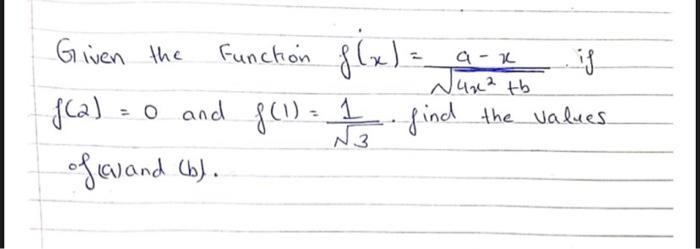 Given the Function f(x) = a-x / √4x² +b . if
f(2) = 0 and f(1) = 1/√3 . find the values
of (a) and (b).